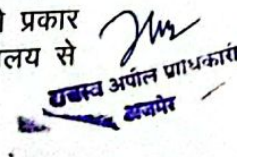 प्रकार
लय से
राजस्व अपील प्राधिकारी
अजमेर